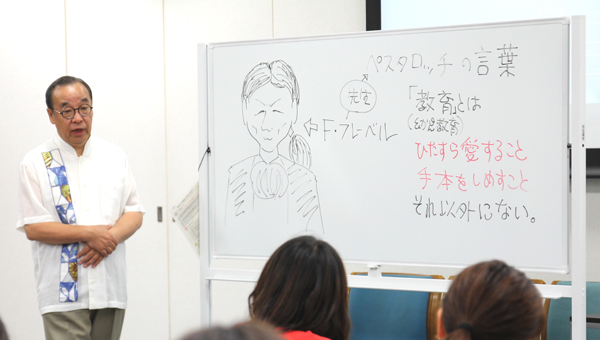 ペスタロッチの言葉
先生
F・フレーベル
「教育」とは
(幼児教育)
ひたすら愛すること
手本をしめすこと
それ以外にない。